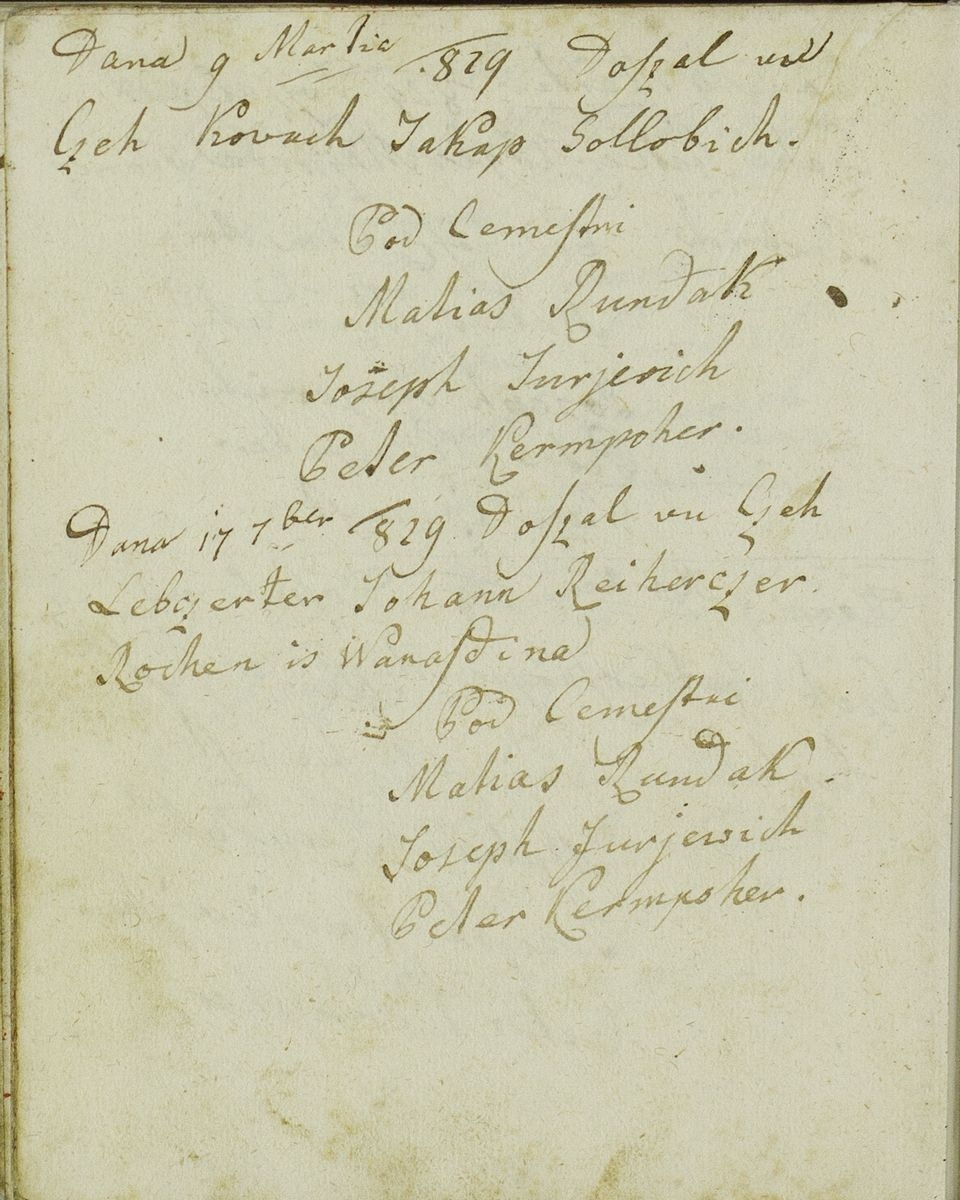 Dana 9 Martia 829 Doszal vu
Czeh Kovach Jakap Sollobich.
Pod Cemestri
Matias Rundak
Joseph Jurjevich
Peter Kermpoher.
Dana 17 7ber 829 Doszal vu Czeh
Lebczerter Johann Reiherczer.
Rochen is Warasdina
Pod Cemestri
Matias Rundak.
Joseph Jurjewich
Peter Kermpoher.